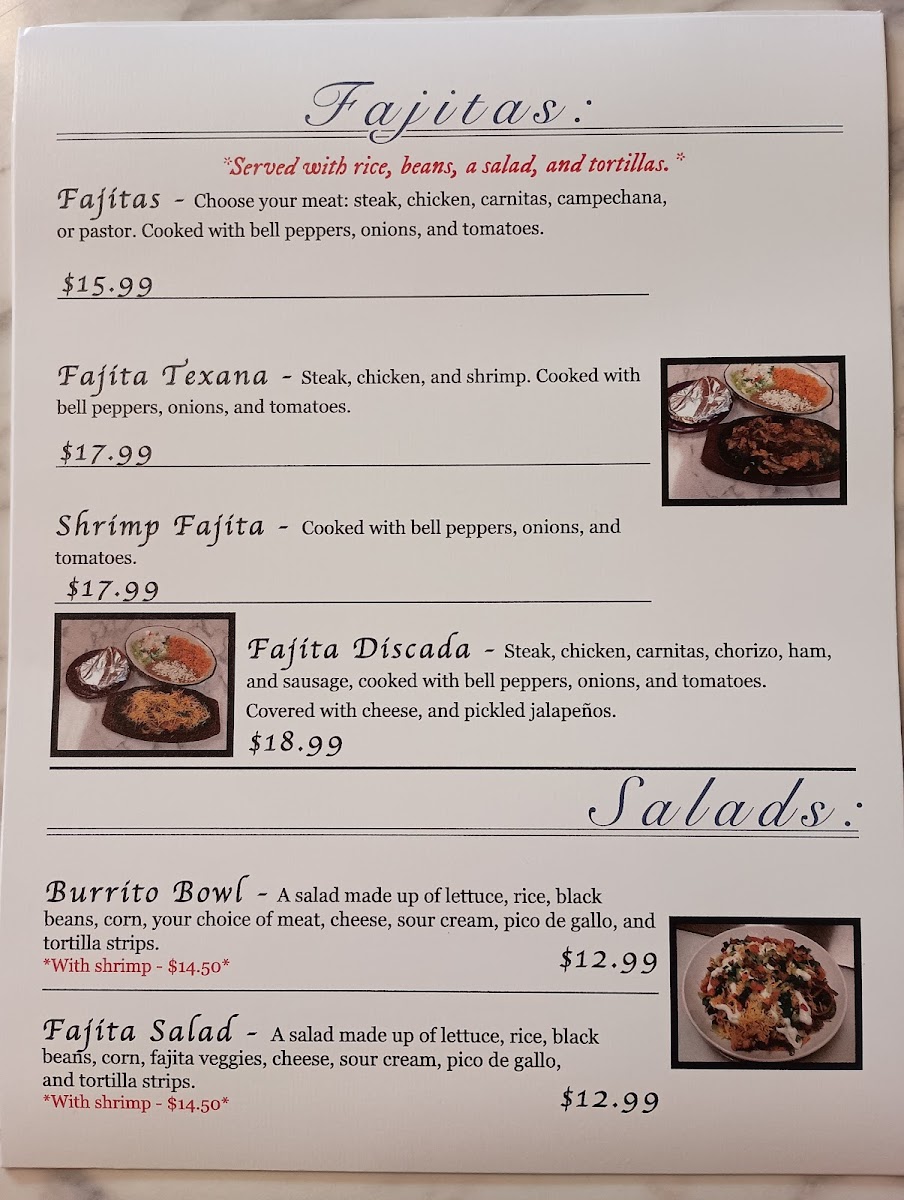 Fajitas:
*Served with rice, beans, a salad, and tortillas.*
Fajitas - Choose your meat: steak, chicken, carnitas, campechana,
or pastor. Cooked with bell peppers, onions, and tomatoes.
$15.99
Fajita Texana - Steak, chicken, and shrimp. Cooked with
bell peppers, onions, and tomatoes.
$17.99
Shrimp Fajita - Cooked with bell peppers, onions, and
tomatoes.
$17.99
Fajita Discada - Steak, chicken, carnitas, chorizo, ham,
and sausage, cooked with bell peppers, onions, and tomatoes.
Covered with cheese, and pickled jalapeños.
$18.99
Salads:
Burrito Bowl - A salad made up of lettuce, rice, black
beans, corn, your choice of meat, cheese, sour cream, pico de gallo, and
tortilla strips.
*With shrimp - $14.50*
$12.99
Fajita Salad - A salad made up of lettuce, rice, black
beans, corn, fajita veggies, cheese, sour cream, pico de gallo,
and tortilla strips.
*With shrimp - $14.50*
$12.99